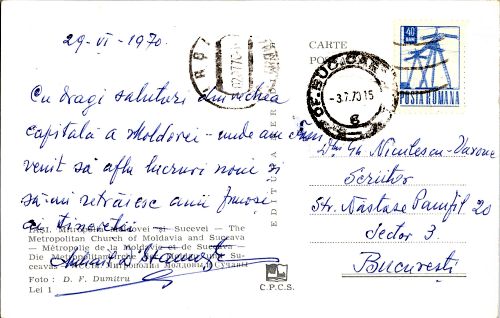 29-VI-1970.
Cu dragi saluturi din vechea
capitală a Moldovei - unde am
venit să aflu lucruri noi și
să-mi retrăiesc anii frumoși
ai tinereții
IAȘI. Mitropolia Moldovei și Sucevei — The
Metropolitan Church of Moldavia and Suceava
— Métropolie de la Moldavie et de Suceava —
Die Metropolitankirche
ceavas
Foto: D. F. Dumitru
Lei 1
EDITURA MERIDIANE
C.P.C.S.
CARTE
PO
OF. BUC. CAR
-3.7.70 15
6
40
BANI
POSTA ROMANA
Gh Niculescu-Varone
Scriitor
Str. Năstase Pamfil 20
Sector 3
București